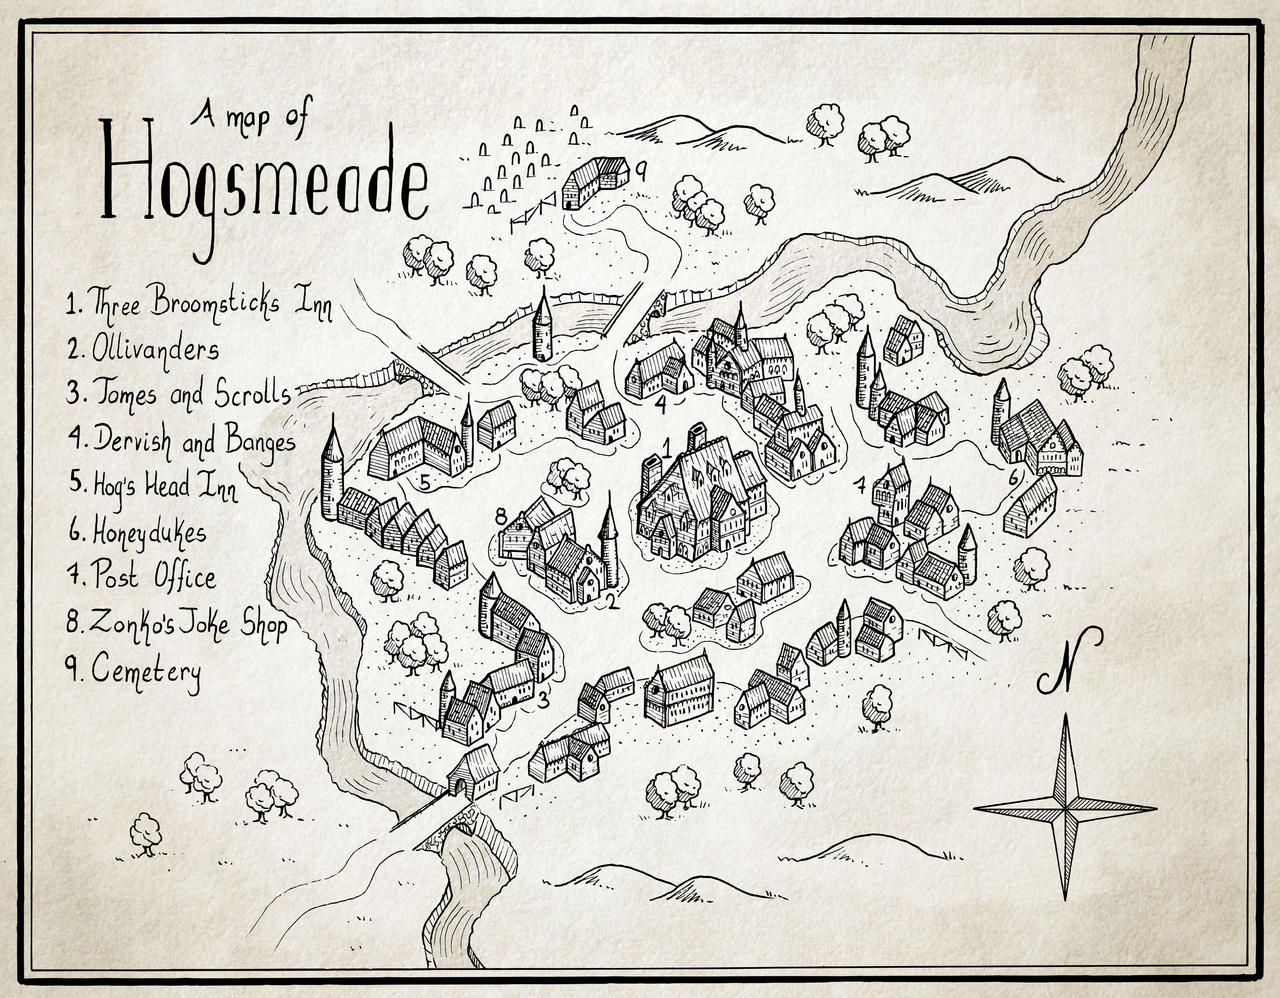 A map of
Hogsmeade
1. Three Broomsticks Inn
2. Ollivanders
3. Tomes and Scrolls
4. Dervish and Banges
5. Hog's Head Inn
6. Honeydukes
7. Post Office
8. Zonko's Joke Shop
9. Cemetery
9
4
1
5
7
6
8
2
3
N